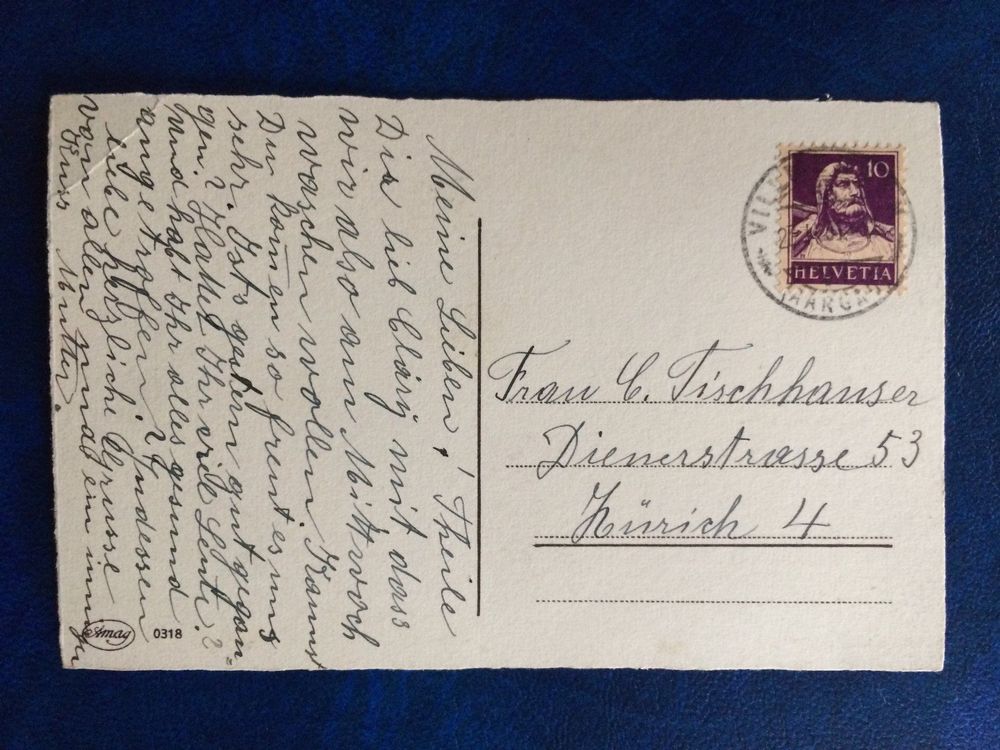 Meine Lieben! Theile
Dir lieb Clärÿ mit das
wir also am Mittwoch
waschen wollen. Kannst
Du kom̄en so freut es uns
sehr. Ists gestern gut gegan=
gen? Hattet Ihr viele Leute?
und habt Ihr alles gesund
angetroffen? Indessen
liebe herzliche Grüsse
von allen und ein innigen
Kuss Mutter.
Amag 0318
10
HELVETIA
VILL
AARGAU
Frau C. Tischhauser
Dienerstrasse 53
Zürich 4